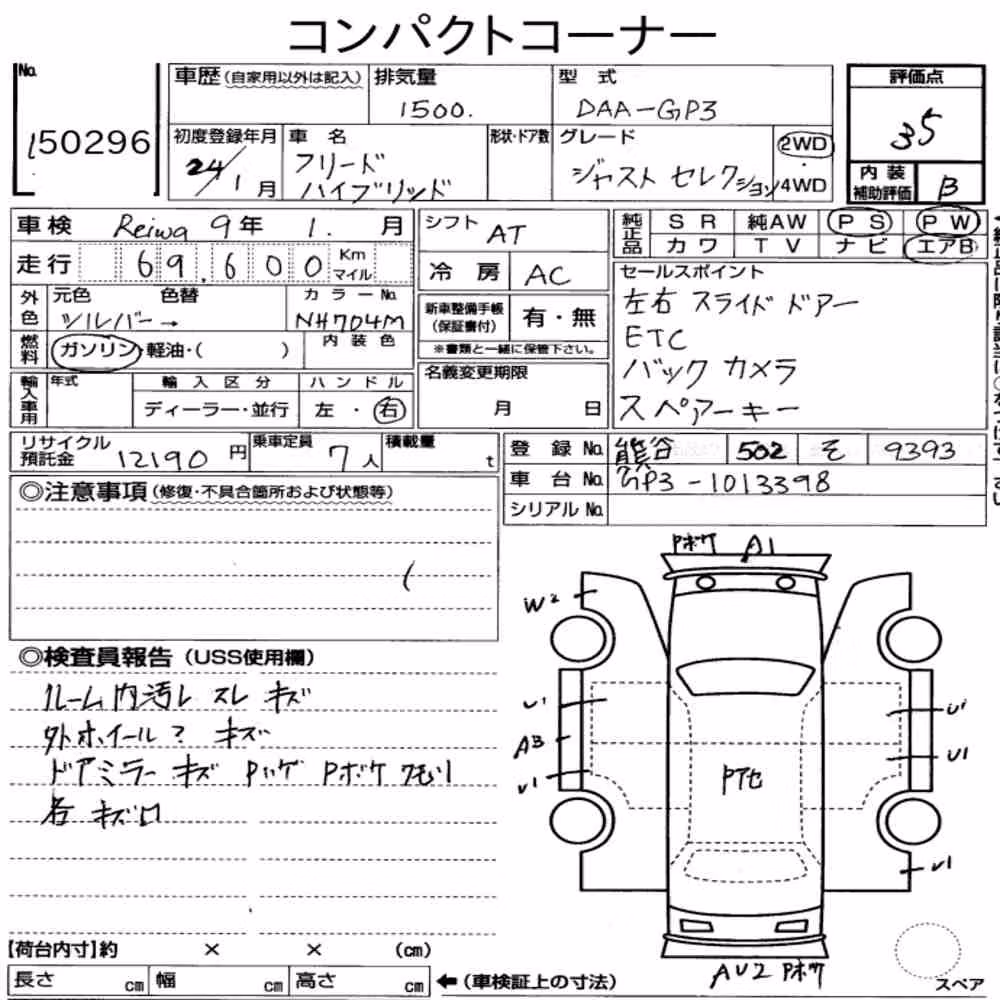 コンパクトコーナー
No. 150296
車歴 (自家用以外は記入)
排気量 1500.
型式 DAA-GP3
評価点 35
初度登録年月 24/1 月
車名 フリード ハイブリッド
形状・ドア数
グレード ジャスト セレクション
2WD ・ 4WD
内装補助評価 B
車検 Reiwa 9年 1. 月
走行 69.600 Km マイル
シフト AT
冷房 AC
純正品 SR 純AW PS PW
カワ TV ナビ エアB
外色 元色 シルバー→ 色替
カラーNo. NH704M
燃料 ガソリン・軽油・( )
内装色
新車整備手帳(保証書付) 有・無
※書類と一緒に保管下さい。
セールスポイント
左右 スライド ドアー
ETC
バック カメラ
スペアーキー
輸入車用 年式
輸入区分 ディーラー・並行
ハンドル 左・右
名義変更期限 月 日
リサイクル預託金 12190 円
乗車定員 7人
積載量 t
登録No. 熊谷 502 そ 9393
車台No. GP3-1013398
シリアルNo.
◎注意事項(修復・不具合箇所および状態等)
◎検査員報告(USS使用欄)
ルーム内汚レ スレ キズ
外ホイール キズ
ドアミラー キズ Pハゲ Pボケ
各 キズ
Pボケ A1
W2
U1
A3
U1
U1
U1
U1
AU2 Pボケ
スペア
【荷台内寸】約 × × (cm)
長さ cm 幅 cm 高さ cm
←(車検証上の寸法)